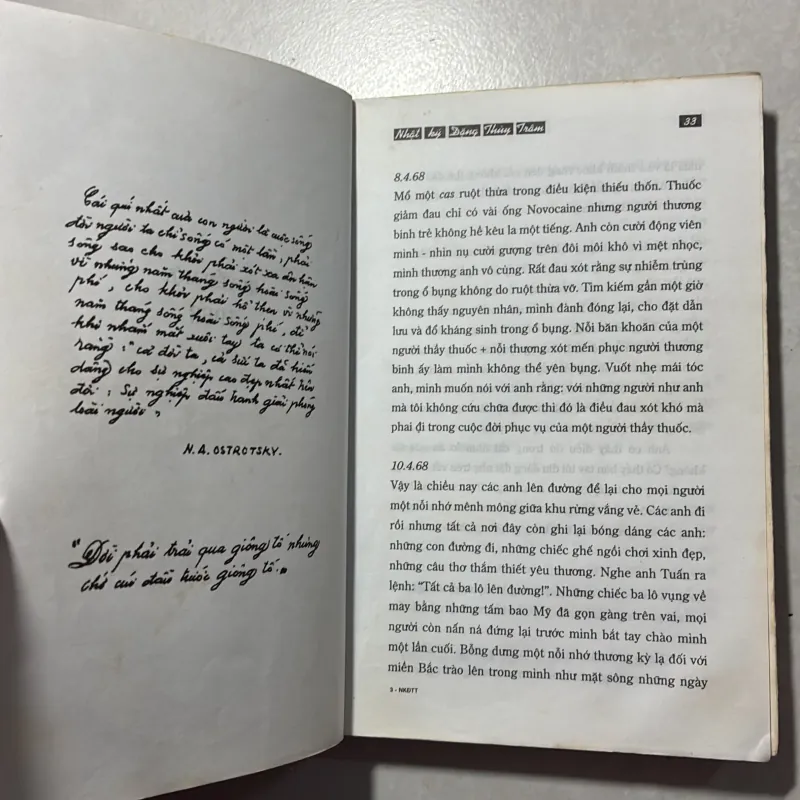 Cái quí nhất của con người là cuộc sống
đời người ta chỉ sống có một lần, phải
sống sao cho khỏi phải xót xa ân hận
vì những năm tháng sống hoài sống
phí, cho khỏi phải hổ thẹn vì những
năm tháng sống hoài sống phí, để
khi nhắm mắt xuôi tay ta có thể nói
rằng: "cả đời ta, cả sức ta đã hiến
dâng cho sự nghiệp cao đẹp nhất trên
đời: Sự nghiệp đấu tranh giải phóng
loài người"
N.A. OSTROTSKY.
"Đời phải trải qua giông tố nhưng
chớ cúi đầu trước giông tố."
Nhật ký Đặng Thùy Trâm
33
8.4.68
Mổ một cas ruột thừa trong điều kiện thiếu thốn. Thuốc
giảm đau chỉ có vài ống Novocaine nhưng người thương
binh trẻ không hề kêu la một tiếng. Anh còn cười động viên
mình - nhìn nụ cười gượng trên đôi môi khô vì mệt nhọc,
mình thương anh vô cùng. Rất đau xót rằng sự nhiễm trùng
trong ổ bụng không do ruột thừa vỡ. Tìm kiếm gần một giờ
không thấy nguyên nhân, mình đành đóng lại, cho đặt dẫn
lưu và đổ kháng sinh trong ổ bụng. Nỗi băn khoăn của một
người thầy thuốc + nỗi thương xót mến phục người thương
binh ấy làm mình không thể yên bụng. Vuốt nhẹ mái tóc
anh, mình muốn nói với anh rằng: với những người như anh
mà tôi không cứu chữa được thì đó là điều đau xót khó mà
phai đi trong cuộc đời phục vụ của một người thầy thuốc.
10.4.68
Vậy là chiều nay các anh lên đường để lại cho mọi người
một nỗi nhớ mênh mông giữa khu rừng vắng vẻ. Các anh đi
rồi nhưng tất cả nơi đây còn ghi lại bóng dáng các anh:
những con đường đi, những chiếc ghế ngồi chơi xinh đẹp,
những câu thơ thắm thiết yêu thương. Nghe anh Tuấn ra
lệnh: "Tất cả ba lô lên đường!". Những chiếc ba lô vụng về
may bằng những tấm bao Mỹ đã gọn gàng trên vai, mọi
người còn nấn ná đứng lại trước mình bắt tay chào mình
một lần cuối. Bỗng dưng một nỗi nhớ thương kỳ lạ đối với
miền Bắc trào lên trong mình như mặt sông những ngày
3 - NKĐTT